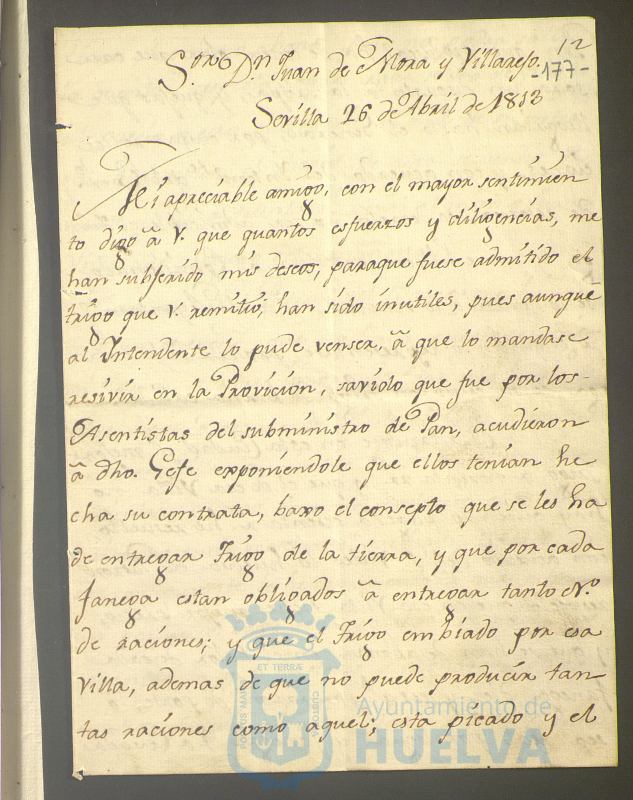 12
-177-
Sor. Dn. Juan de Mora y Villarejo.
Sevilla 26 de Abril de 1813
Mi apreciable amigo, con el mayor sentimien
to digo â V. que quantos esfuerzos y diligencias, me
han subferido mis deseos, paraque fuese admitido el
trigo que V. remitio, han sido inutiles, pues aunque
al Yntendente lo pude venser, â que lo mandase
resivir en la Provicion, savido que fue por los-
Asentistas del subministro de Pan, acudieron
â dho. Gefe exponiendole que ellos tenian he
cha su contrata, baxo el consepto que se les ha
de entregar Trigo de la tierra, y que por cada
fanega estan obligados â entregar tanto No.
de raciones; y que el Trigo embiado por esa
Villa, ademas de que no puede producir tan
tas raciones como aquel; esta picado y el
ET TERRÆ
PORTUS MARIS
CUSTODIA
Ayuntamiento de
HUELVA